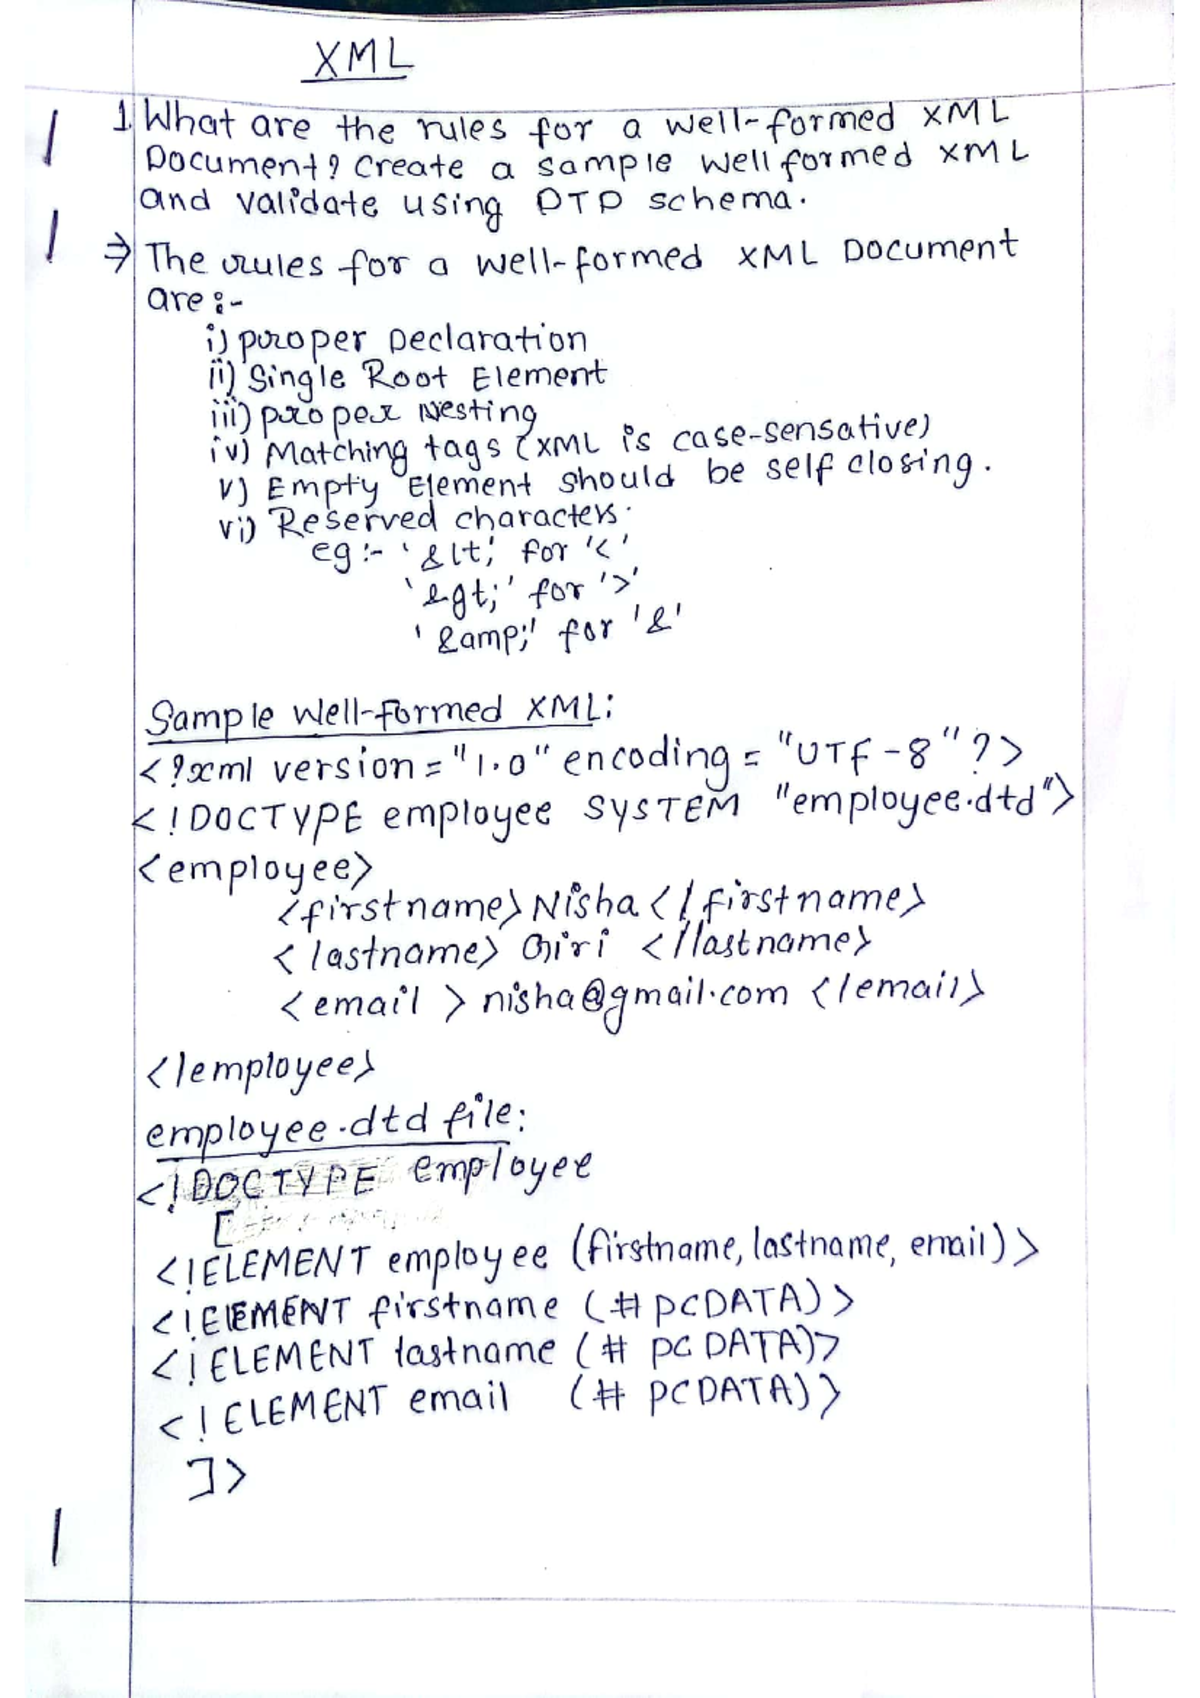 XML
1. What are the rules for a well-formed XML
Document? Create a sample well formed XML
and validate using DTD schema.
⇒ The rules for a well-formed XML Document
are :-
i) proper Declaration
ii) Single Root Element
iii) proper Nesting
iv) Matching tags (XML is case-sensative)
v) Empty Element should be self closing.
vi) Reserved characters.
eg :- '&lt;' for '<'
'&gt;' for '>'
'&amp;' for '&'
Sample Well-Formed XML:
<?xml version="1.0" encoding = "UTF-8"?>
<!DOCTYPE employee SYSTEM "employee.dtd">
<employee>
<firstname>Nisha</firstname>
<lastname> Giri </lastname>
<email > nisha@gmail.com </email>
</employee>
employee.dtd file:
<!DOCTYPE employee
[
<!ELEMENT employee (firstname, lastname, email)>
<!ELEMENT firstname (#PCDATA)>
<!ELEMENT lastname (# PCDATA)>
<!ELEMENT email (# PCDATA)>
]>